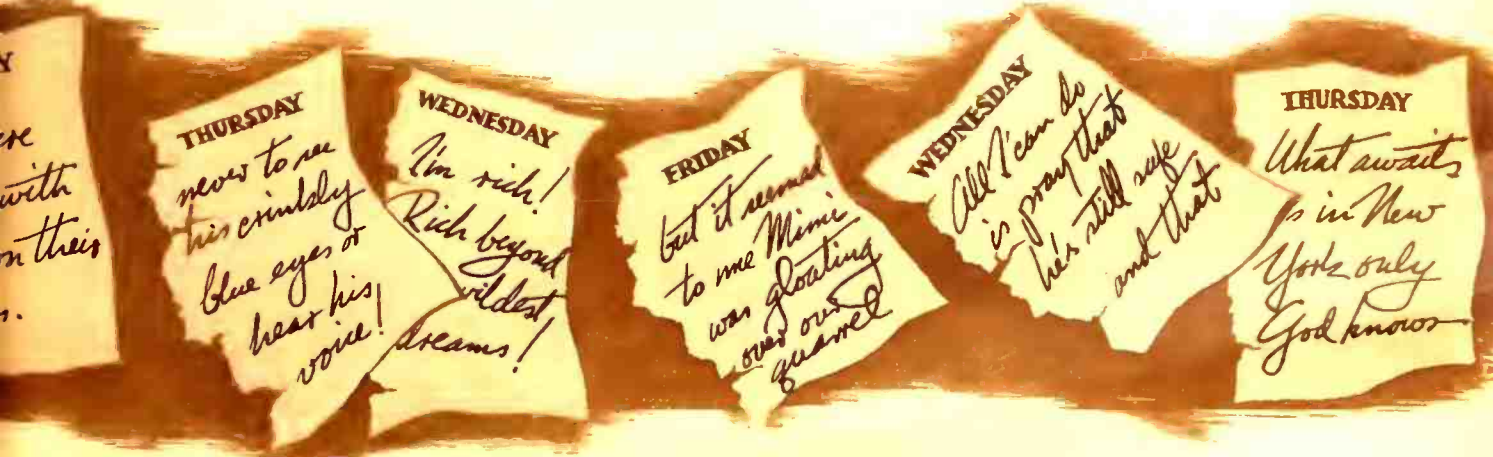 Y
ere
with
on their
s.
THURSDAY
never to see
his crinkly
blue eyes or
hear his
voice!
WEDNESDAY
I'm rich!
Rich beyond
wildest
dreams!
FRIDAY
but it seemed
to me Mimi
was gloating
over our
quarrel
WEDNESDAY
All I can do
is pray that
he's still safe
and that
THURSDAY
What awaits
s in New
York only
God knows